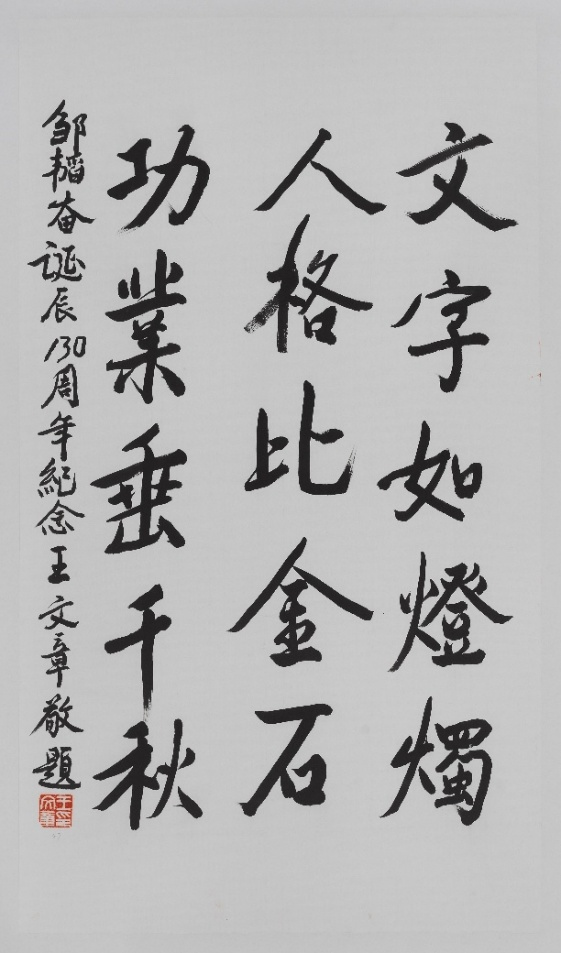 文字如燈燭
人格比金石
功業垂千秋
邹韬奋誕辰130周年紀念王文章敬題
王文章印